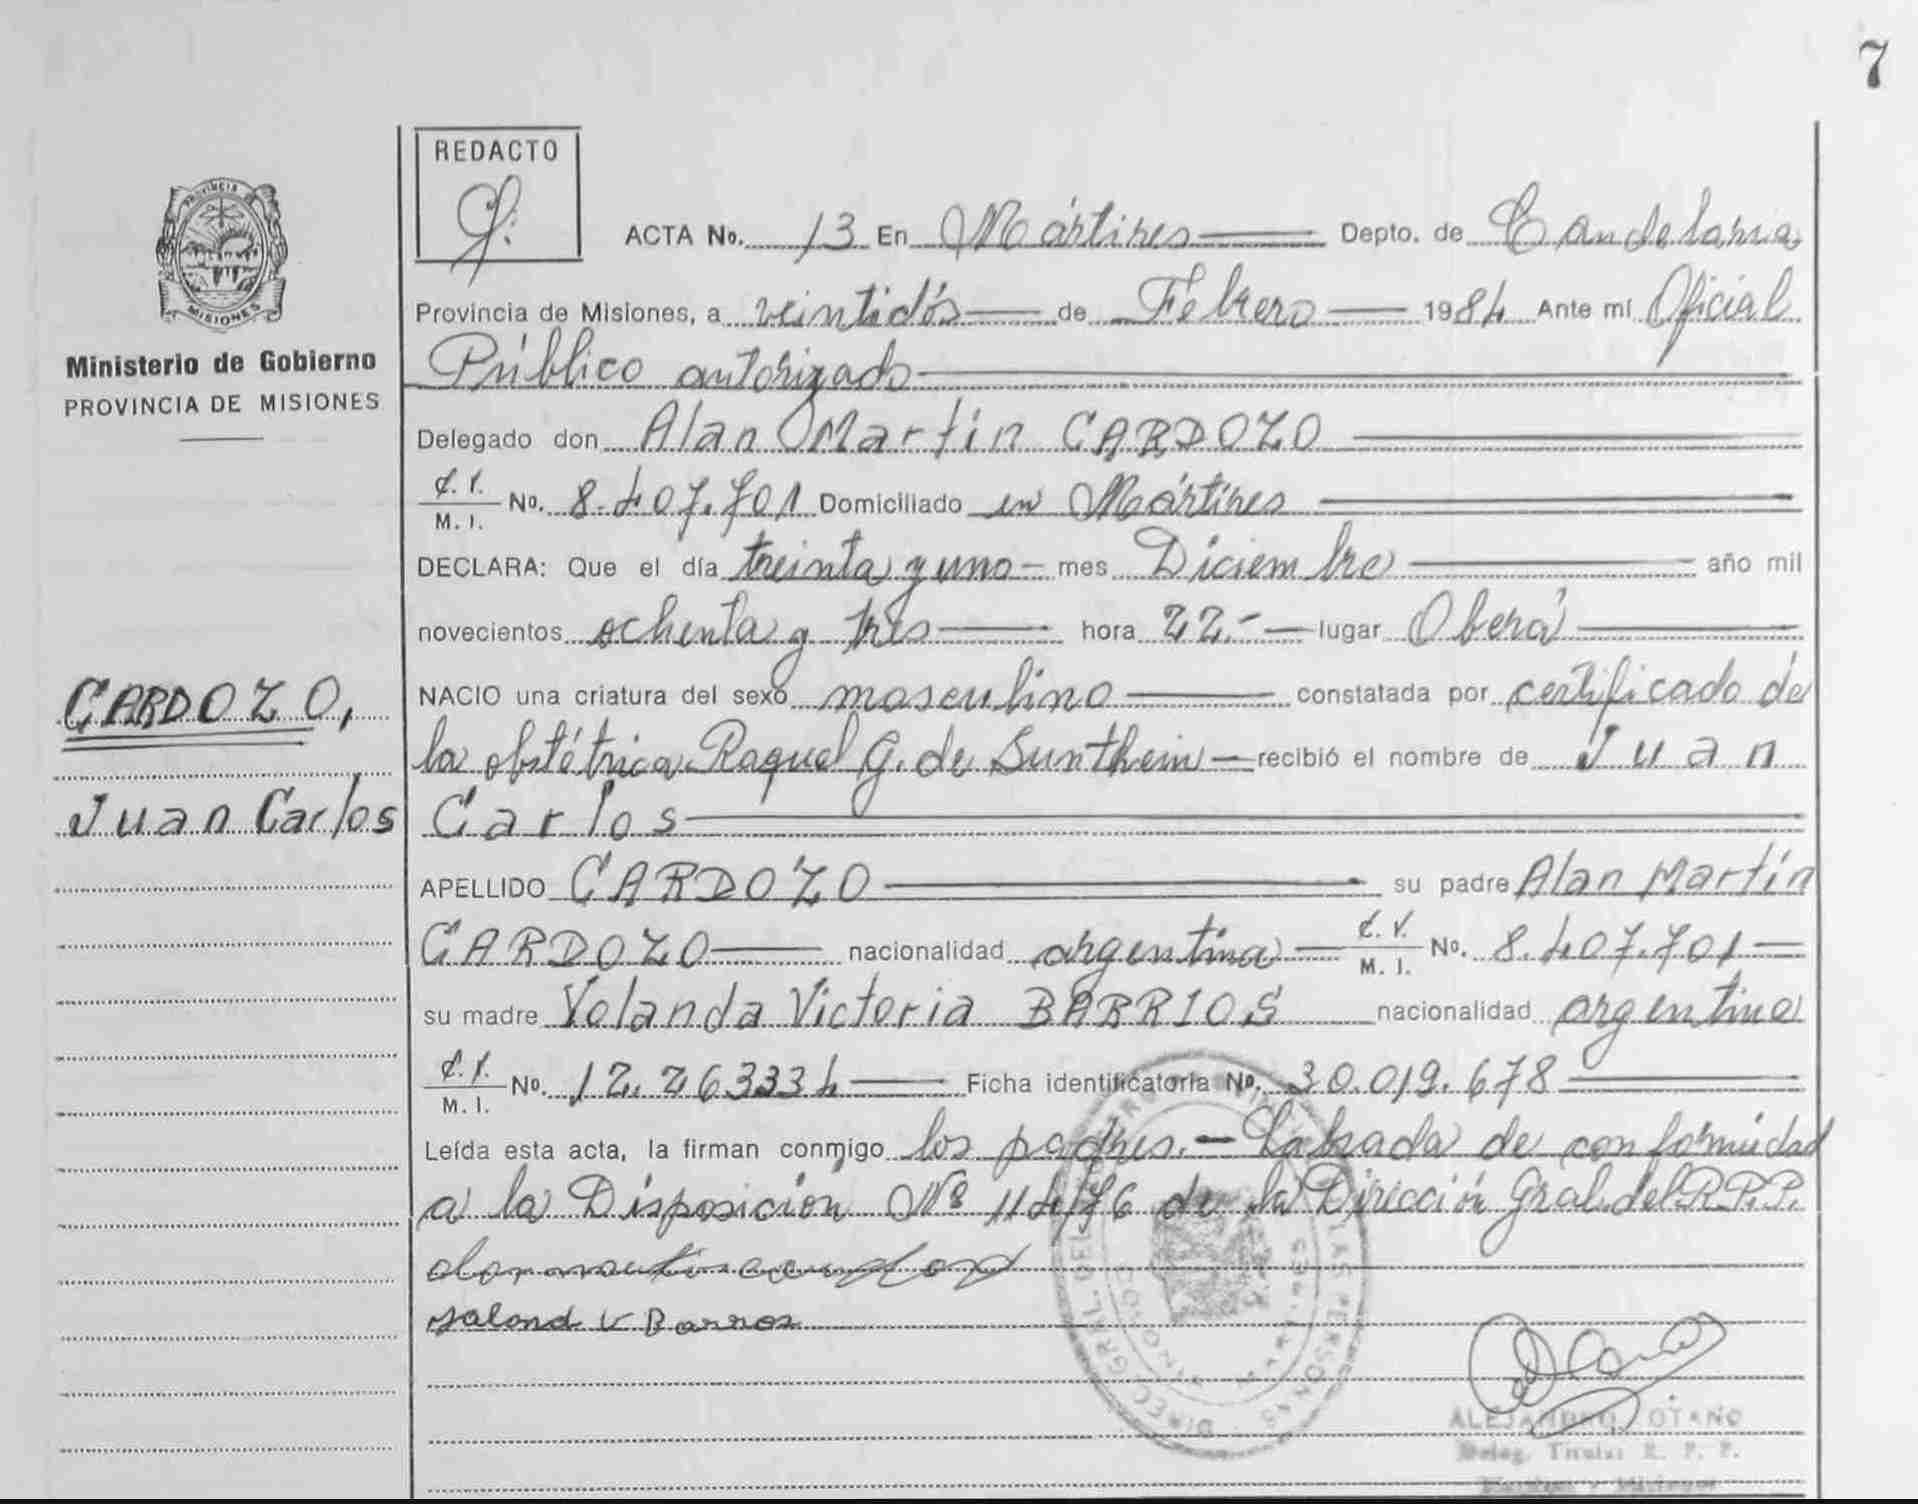 7
REDACTO
PROVINCIA
MISIONES
Ministerio de Gobierno
PROVINCIA DE MISIONES
ACTA No. 13 En Mártires Depto. de Candelaria,
Provincia de Misiones, a veintidós de Febrero 1984 Ante mí Oficial
Público autorizado
Delegado don Alan Martín CARDOZO
C. I.
M. I.
No. 8.407.701 Domiciliado en Mártires
DECLARA: Que el día treinta y uno mes Diciembre año mil
novecientos ochenta y tres hora 22.- lugar Oberá
CARDOZO,
NACIO una criatura del sexo masculino constatada por certificado de
la obstétrica Raquel G. de Sunthein recibió el nombre de Juan
Juan Carlos
Carlos
APELLIDO CARDOZO su padre Alan Martín
CARDOZO nacionalidad argentina C. I.
M. I.
No. 8.407.701
su madre Yolanda Victoria BARRIOS nacionalidad argentina
C. I.
M. I.
No. 12.263334 Ficha identificatoria No. 30.019.678
Leída esta acta, la firman conmigo los padres.- Labrada de conformidad
a la Disposición Nº 114/76 de la Dirección Gral. del R.P.P.
yalond V Barros
ALEJANDRO OTAÑO
Deleg. Titular R. P. P.